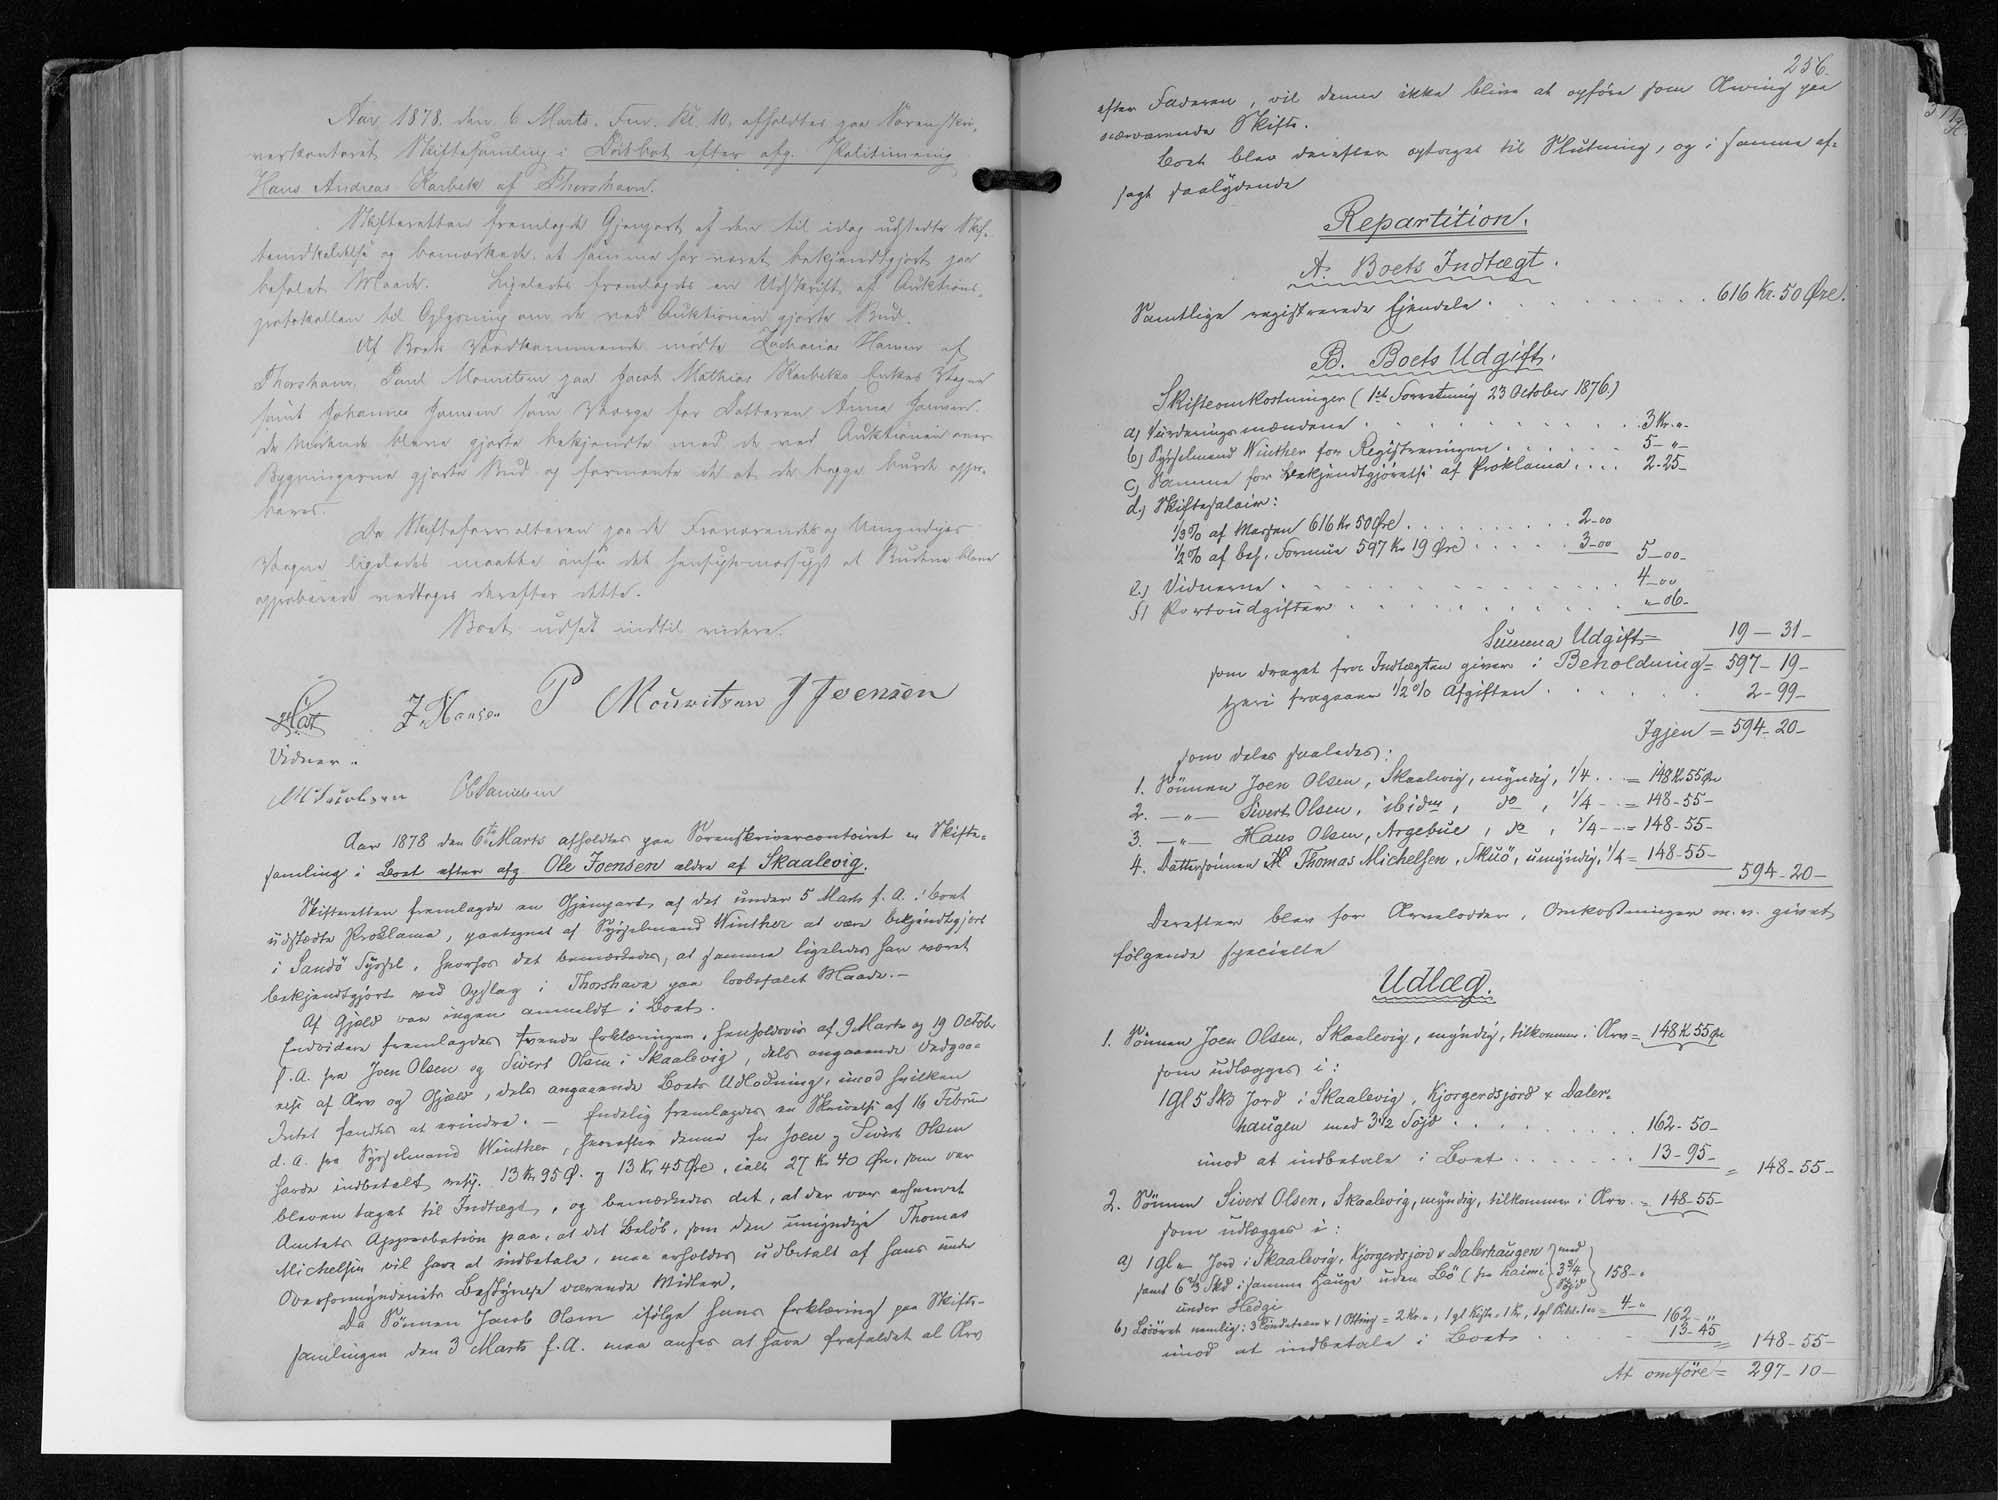 Aar 1878. den 6 Marts. Fm. Kl. 10. afholdtes paa Sorenskri-
verkontoret Skiftesamling i Dödsbo efter afg.
Hans Andreas Karbek af Thorshavn.
Skifteretten fremlagde Gjenpart af den til idag udstedte Skif-
teindkaldelse og bemærkede, at samme har været bekjendtgjort paa
befalet Maade. Ligeledes fremlagdes en Udskrift af Auktions-
protokollen til Oplysning om de ved Auktionen gjorte Bud.
Af Boets Vedkommende mødte Zacharias Hansen af
Thorshavn, Poul Mouritsen paa Jacob Mathias Karbeks Enkes Vegne
samt Johannes Joensen som Værge for Datteren Anna
De Mødende bleve gjorte bekjendte med de ved Auktionen over
Bygningerne gjorte Bud og formente de at de begge burde appro-
beres.
Da Skifteforvalteren paa de Fraværendes og Umyndiges
Vegne ligeledes maatte anse det hensigtsmæssigt at Budene bleve
approberede vedtoges derefter dette.
Boet udsat indtil videre.
Z. Hansen P Mouritsen J Joensen
Vidner:
Aar 1878 den 6te Marts afholdtes paa Sorenskrivercontoiret en Skifte-
samling i Boet efter afg. Ole Joensen ældre af Skaalevig.
Skifteretten fremlagde en Gjenpart af det under 5 Marts f. A. i Boet
udstedte Proklama, paategnet af Sysselmand Winther at være bekjendtgjort
i Sandö Syssel, hvorhos det bemærkedes, at samme ligeledes har været
bekjendtgjort ved Opslag i Thorshavn paa lovbefalet Maade.-
Af Gjæld var ingen anmeldt i Boet.
Endvidere fremlagdes tvende Erklæringer, henholdsvis af 9 Marts og 19 Octobr
f. A. fra Joen Olsen og Sivert Olsen i Skaalevig, dels angaaende Vedgaa-
else af Arv og Gjæld, dels angaaende Boets Udlodning, imod hvilken
Intet fandtes at erindre. - Endelig fremlagdes en Skrivelse af 16 Februar
d. A. fra Sysselmand Winther, hvorefter denne for Joen og Sivert Olsen
havde indbetalt resp. 13 Kr 95 Ø. og 13 Kr 45 Øre, ialt 27 Kr 40 Øre, som var
bleven taget til Indtægt, og bemærkedes det, at der var erhvervet
Amtets Approbation paa, at det Beløb, som den umyndige Thomas
Michelsen vil have at indbetale, maa erholdes udbetalt af hans under
Overformynderiets Bestyrelse værende Midler.
Da Sønnen Jacob Olsen ifølge hans Erklæring paa Skifte-
samlingen den 3 Marts f. A. maa anses at have frafaldet al Arv
256.
efter Faderen, vil denne ikke blive at opføre som Arving paa
nærværende Skifte.
Boet blev derefter optaget til Slutning, og i samme af-
sagt saalydende
Repartition.
A. Boets Indtægt.
Samtlige registrerede Ejendele . . . 616 Kr. 50 Øre.
B. Boets Udgift.
Skifteomkostninger (1ste Forretning 23 October 1876.)
a) Vurderingsmændene . . . 3 Kr. "-
b) Sysselmand Winther for Registreringen . . . 5 - " -
c) Samme for Bekjendtgjørelse af Proklama . . . 2-25-
d) Skiftesalair:
1/3 % af Massen 616 Kr 50 Øre) . . . 2-00
1/2 % af beh. Formue 597 Kr 19 Øre) . . . 3-00 5-00-
e) Vidnerne . . . 4-00
f) Portoudgifter . . . "-06-
Summa Udgift = 19-31-
som draget fra Indtægten giver i Beholdning = 597-19-
Heri fragaaer 1/2 % Afgiften . . . 2-99-
Igjen = 594-20-
som deles saaledes:
1. Sønnen Joen Olsen, Skaalevig, myndig, 1/4 . . = 148 Kr 55 Øre
2. -"- Sivert Olsen, ibidm, do, 1/4 - - = 148-55-
3. -"- Hans Olsen, Argebue, do, 1/4 - - = 148-55-
4. Dattersönnen Thomas Michelsen, Skuö, umyndig, 1/4 = 148-55- 594-20-
Derefter blev for Arvelodder, Omkostninger m. v. givet
følgende specielle
Udlæg.
1. Sönnen Joen Olsen, Skaalevig, myndig, tilkommer i Arv = 148 Kr 55 Øre
som udlægges i:
1 Gl 5 Skd Jord i Skaalevig, Kjorgerdsjord & Daler-
haugen med 3 1/2 Söjd . . . 162-50-
imod at indbetale i Boet . . . 13-95- = 148-55-
2. Sönnen Sivert Olsen, Skaalevig, myndig, tilkommer i Arv. = 148-55-
som udlægges i:
a) 1 gl "- Jord i Skaalevig, Kjorgerdsjord & Dalerhaugen } med
samt 6 2/3 Skd i samme Hauge uden Bö (fra haimi } 3 3/4 Söjd } 158-"
under Hedgi
b) Løsöret nemlig: 3 & 1 Otting = 2 Kr. ", 1 gl Kiste = 1 Kr, 1 gl = 4-" 162-"
imod at indbetale i Boet . . . 13-45 = 148-55-
At omføre = 297-10-